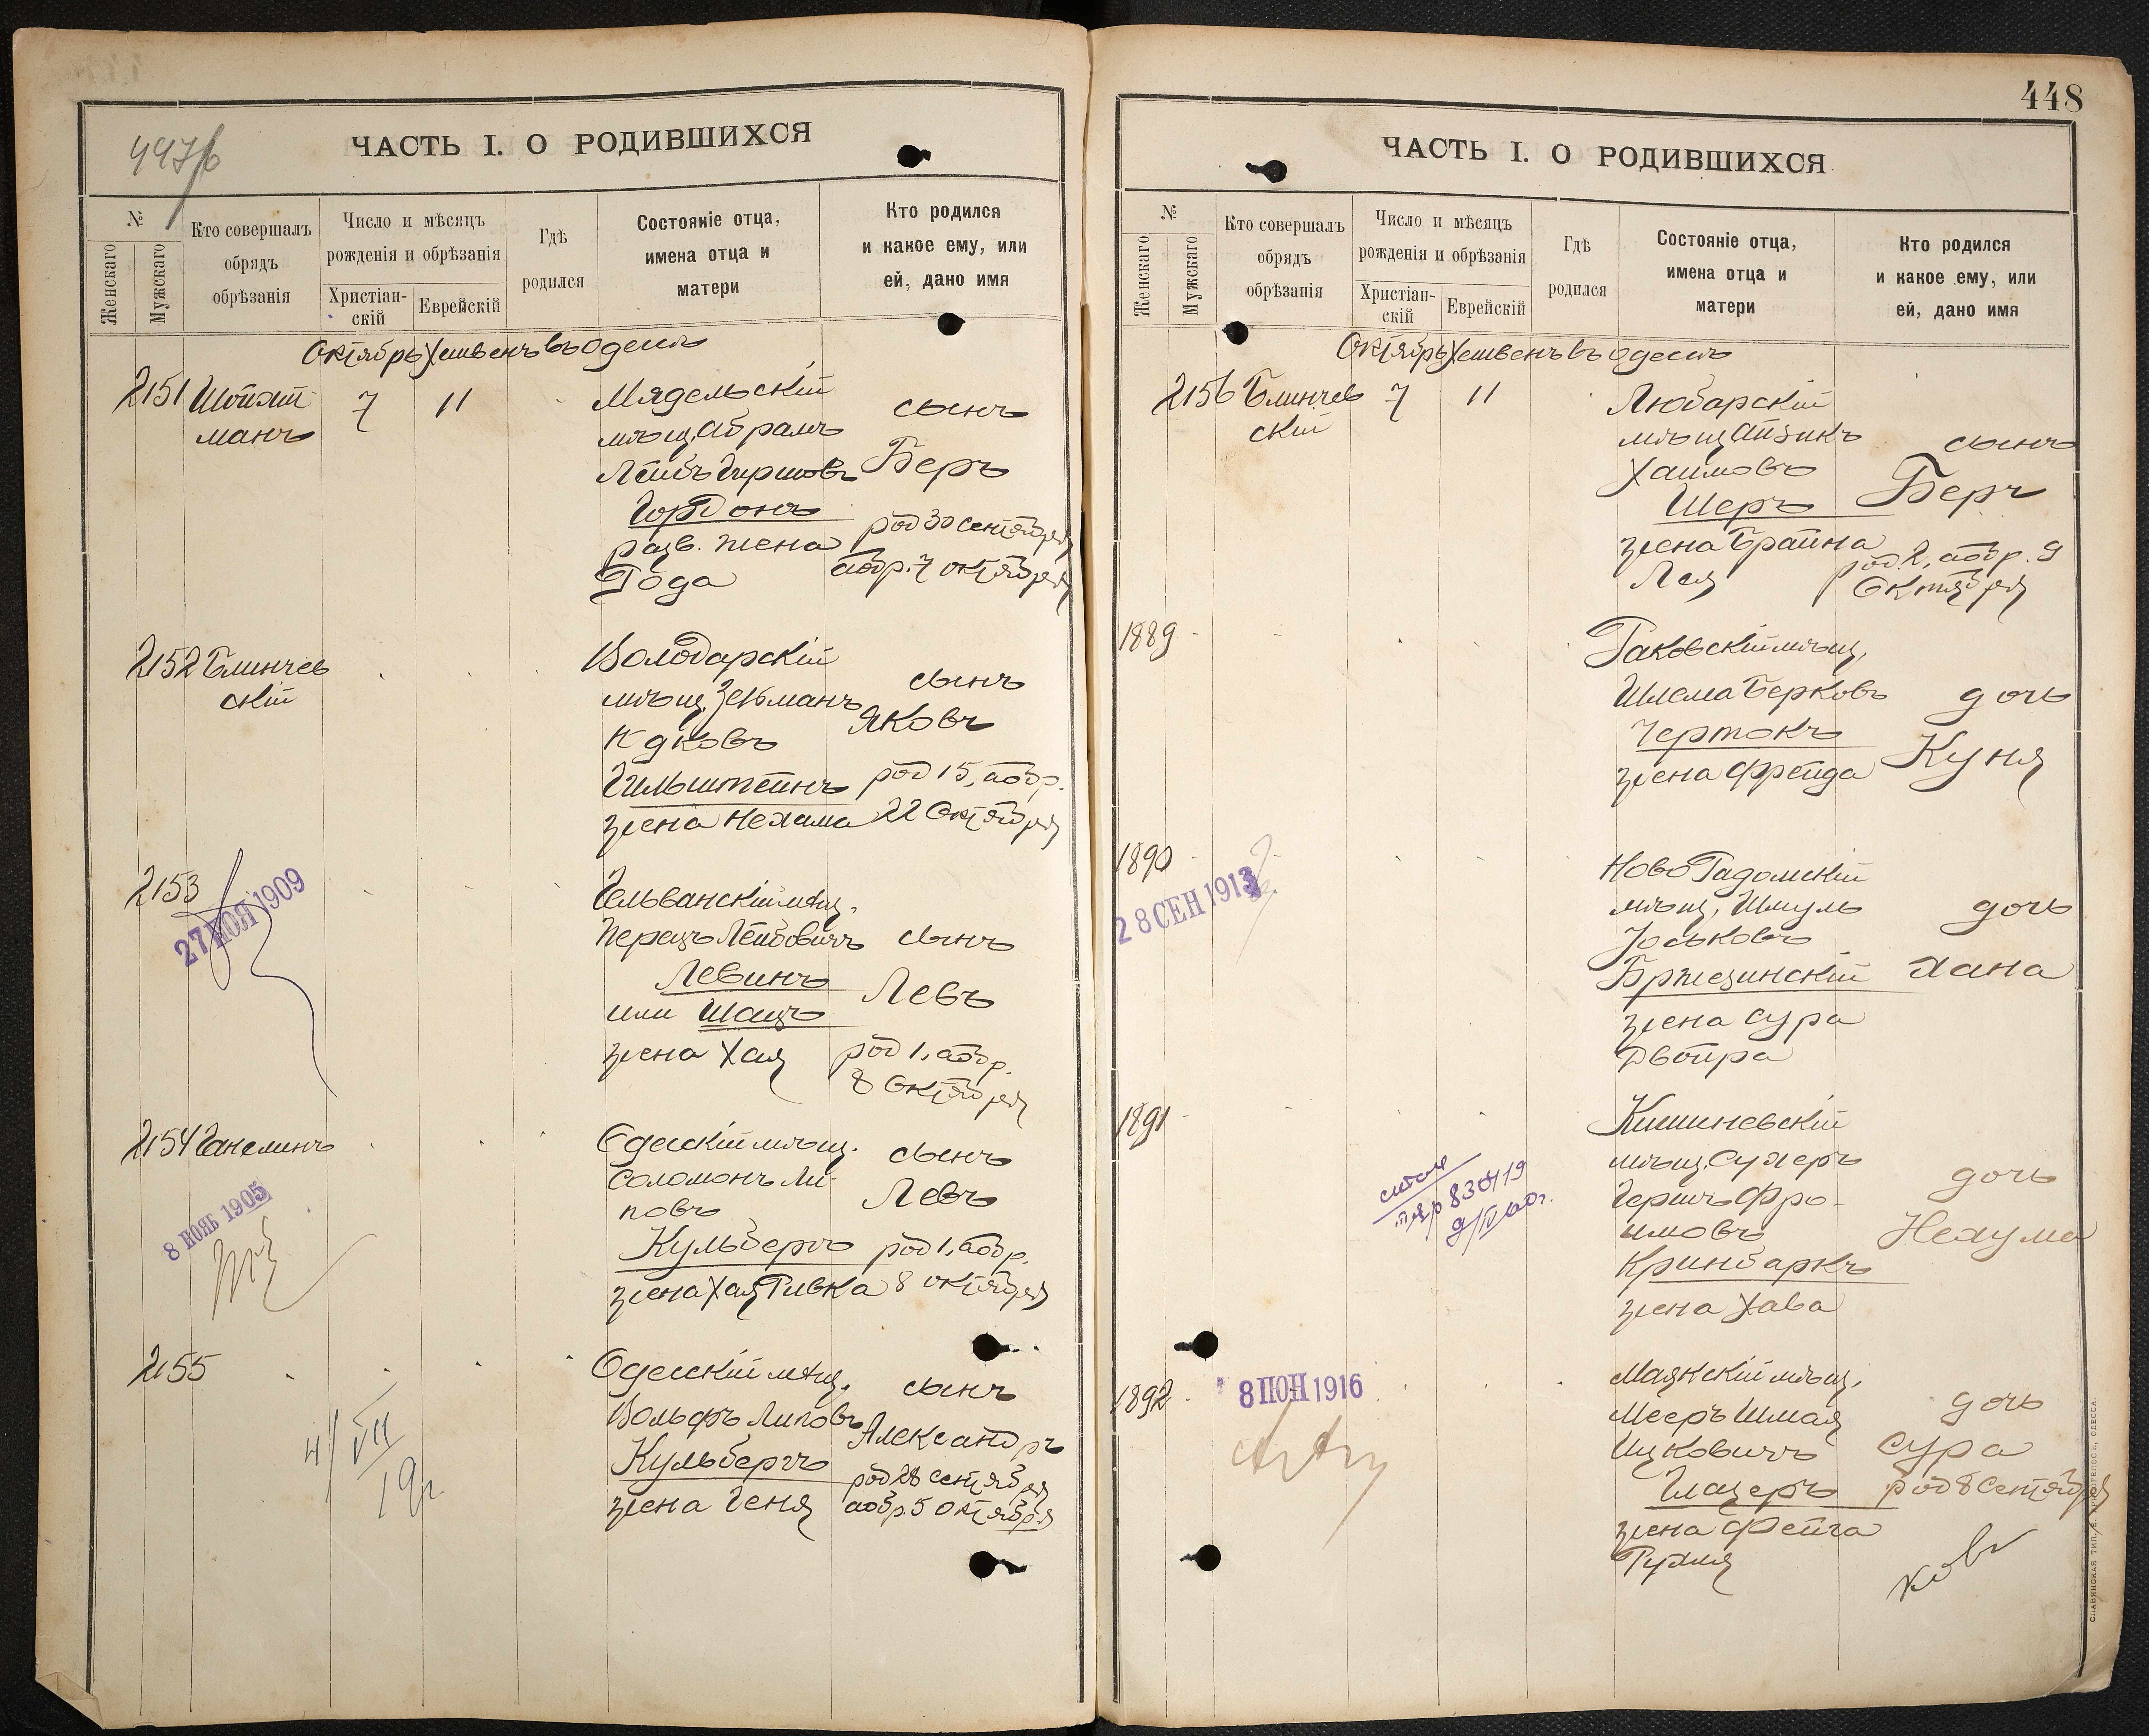 ЧАСТЬ I. О РОДИВШИХСЯ
№
Женскаго
Мужскаго
Кто совершалъ
обрядъ
обрѣзанія
Число и мѣсяцъ
рожденія и обрѣзанія
Христіан-
скій
Еврейскій
Гдѣ
родился
Состояніе отца,
имена отца и
матери
Кто родился
и какое ему, или
ей, дано имя
Октябрь Хешвенъ въ Одессѣ
2151
манъ
7
11
Мядельскій
мѣщ. Абрамъ
Лейбъ Гиршовъ
Гордонъ
разв. жена
Года
сынъ
Беръ
род 30 сентября
обр. 7 октября
2152 Блинчев
скій
Володарскій
мѣщ. Зельманъ
Гильштейнъ
жена Нехама
сынъ
Яковъ
род 15, обр.
22 Октября
2153
27 НОЯ 1909
Гельванскій мѣщ.
Перецъ Лейбовичъ
Левинъ
или Шацъ
жена Хая
сынъ
Левъ
род 1, обр.
8 Октября
2154 Ганелинъ
8 НОЯБ 1905
Одесскій мѣщ.
Соломонъ Ли-
повъ
Кульбергъ
жена Хая Ривка
сынъ
Левъ
род 1, обр.
8 октября
2155
4/VII
19г.
Одесскій мѣщ.
Вольфъ Липовъ
Кульбергъ
жена Геня
сынъ
Александръ
род 28 сентября
обр. 5 октября
448
ЧАСТЬ I. О РОДИВШИХСЯ
№
Женскаго
Мужскаго
Кто совершалъ
обрядъ
обрѣзанія
Число и мѣсяцъ
рожденія и обрѣзанія
Христіан-
скій
Еврейскій
Гдѣ
родился
Состояніе отца,
имена отца и
матери
Кто родился
и какое ему, или
ей, дано имя
Октябрь Хешвенъ въ Одессѣ
2156 Блинчев
скій
7
11
Любарскій
мѣщ. Айзикъ
Хаимовъ
Шеръ
жена Брайна
Лея
сынъ
Беръ
род. 2, обр. 9
Октября
1889
Раковскій мѣщ.
Шлема Берковъ
Чертокъ
жена Фрейда
дочь
Куня
1890
28 СЕН 1913
Ново Радомскій
мѣщ. Шмуль
Юськовъ
Бржезинскій
жена Сура
Двойра
дочь
Хана
1891
Кишиневскій
мѣщ. Сухеръ
Гершъ Фро-
имовъ
Кринбаркъ
жена Хава
дочь
Нехума
1892
8 ИЮН 1916
Маякскій мѣщ.
Мееръ Шмая
Ицковичъ
Глазеръ
жена Фейга
Рухля
дочь
Сура
род 8 Сентября